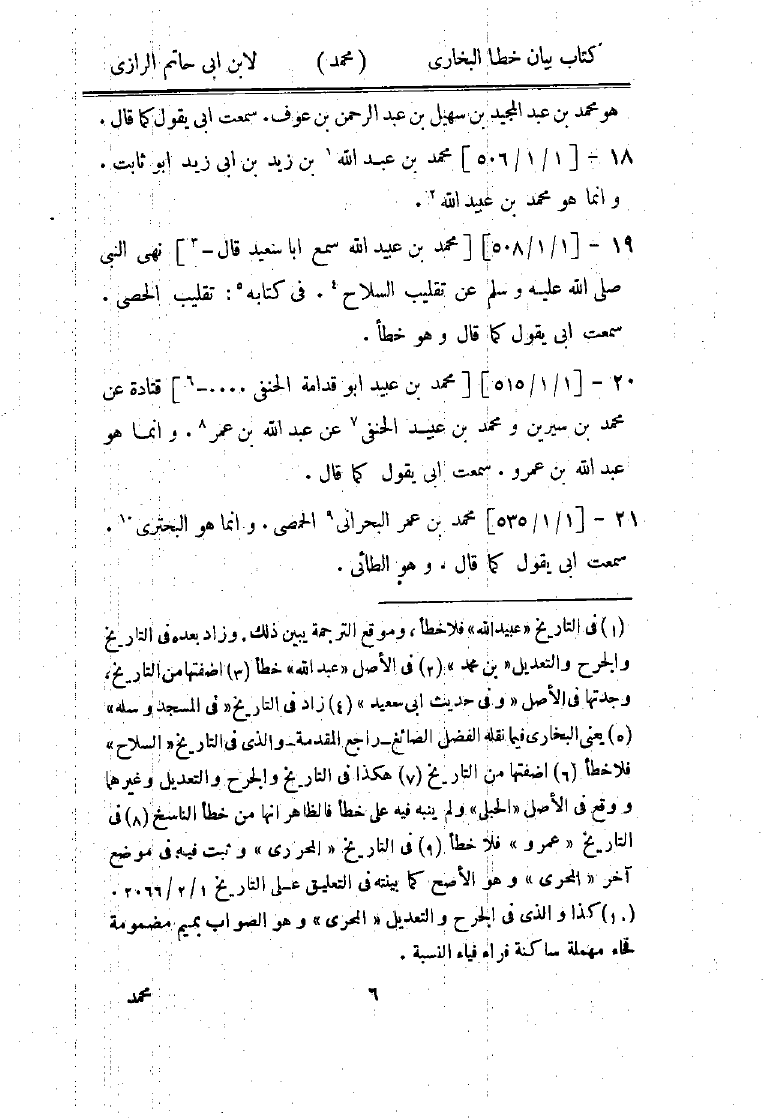 كتاب بيان خطا البخارى (محمد) لابن ابى حاتم الرازى
هو محمد بن عبد المجيد بن سهيل بن عبد الرحمن بن عوف. سمعت ابى يقول كما قال.
١٨ - [٥٠٦/١/١] محمد بن عبد الله ١ بن زيد بن ابى زيد ابو ثابت.
و انما هو محمد بن عبيد الله ٢.
١٩ - [٥٠٨/١/١] [محمد بن عبيد الله سمع ابا سعيد قال-٣] نهى النبى
صلى الله عليه و سلم عن تقليب السلاح ٤. فى كتابه ٥: تقليب الحصى.
سمعت ابى يقول كما قال و هو خطأ.
٢٠ - [٥١٥/١/١] [محمد بن عبيد ابو قدامة الحنفى ....-٦] قتادة عن
محمد بن سيرين و محمد بن عبيد الحنفى ٧ عن عبد الله بن عمر ٨. و انما هو
عبد الله بن عمرو. سمعت ابى يقول كما قال.
٢١ - [٥٣٥/١/١] محمد بن عمر البحرانى ٩ الحمصى. و انما هو البحترى ١٠.
سمعت ابى يقول كما قال، و هو الطائى.
(١) فى التاريخ «عبيد الله» فلا خطأ، وموقع الترجمة يبين ذلك، وزاد بعده فى التاريخ
والجرح والتعديل «بن محمد» (٢) فى الأصل «عبد الله» خطأ (٣) اضفتها من التاريخ،
وجدتها فى الأصل «و فى حديث ابى سعيد» (٤) زاد فى التاريخ «فى المسجد و سله»
(٥) يعنى البخارى فيما نقله الفضل الصائغ - راجع المقدمة - والذى فى التاريخ «السلاح»
فلا خطأ (٦) اضفتها من التاريخ (٧) هكذا فى التاريخ والجرح والتعديل وغيرهما
و وقع فى الأصل «الحبلى» ولم ينبه فيه على خطأ فالظاهر انها من خطأ الناسخ (٨) فى
التاريخ «عمرو» فلا خطأ (٩) فى التاريخ «المحررى» و ثبت فيه فى موضع
آخر «المحرى» و هو الأصح كما بينته فى التعليق على التاريخ ٢٠٦٦/٢/١.
(١٠) كذا و الذى فى الجرح و التعديل «المحرى» و هو الصواب بميم مضمومة
فحاء مهملة ساكنة فراء فياء النسبة.
٦ محمد